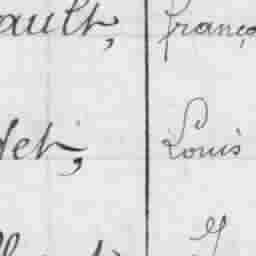 ault, franço
det, Louis